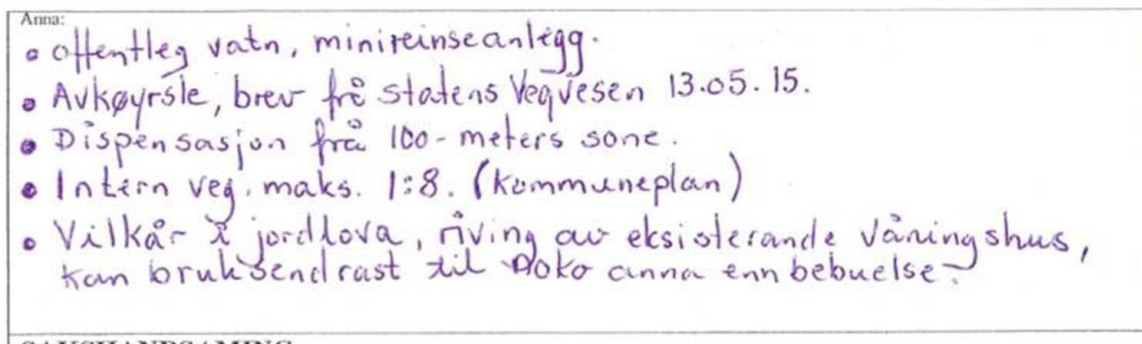 Anna:
• offentleg vatn, minireinseanlegg.
• Avkøyrsle, brev frå statens Vegvesen 13.05.15.
• Dispensasjon frå 100-meters sone.
• Intern veg. maks. 1:8. (kommuneplan)
• Vilkår i jordlova, riving av eksisterande våningshus,
kan bruksendrast til noko anna enn bebuelse.